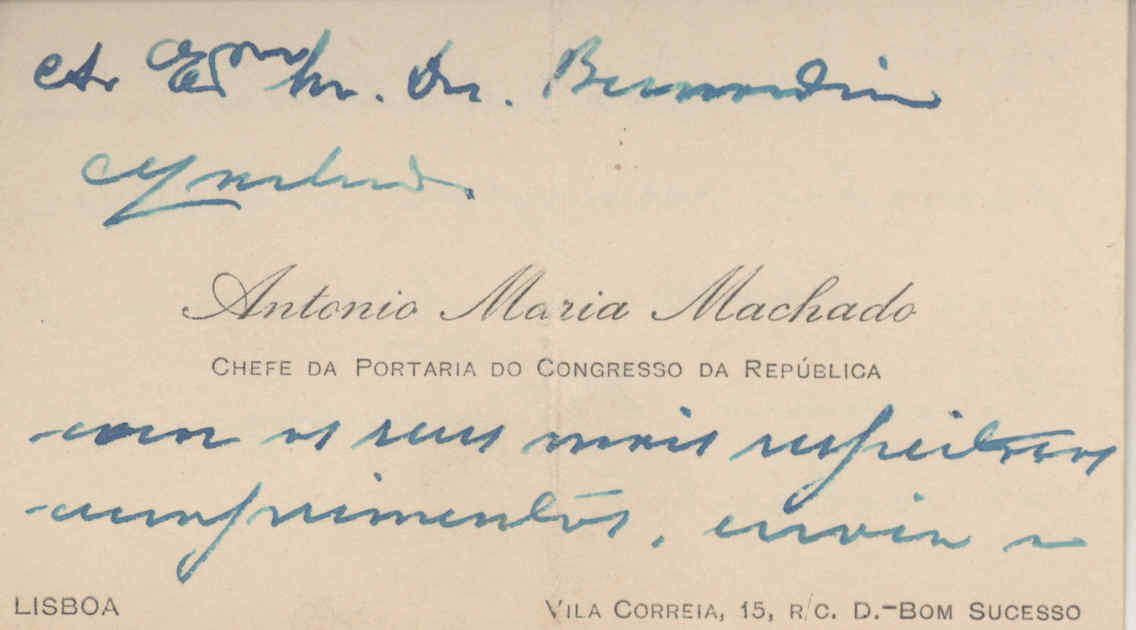 Ao Exmo Sr. Dr. Bernardino
Machado.
Antonio Maria Machado
CHEFE DA PORTARIA DO CONGRESSO DA REPÚBLICA
com os seus mais respeitosos
cumprimentos, envia o
LISBOA
VILA CORREIA, 15, R/C. D.-BOM SUCESSO